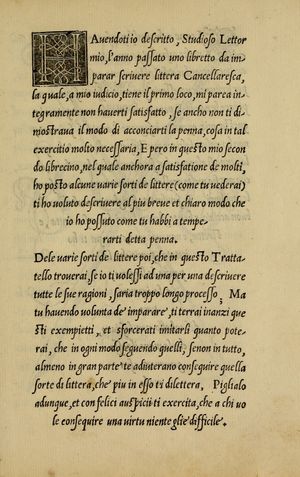 HAuendoti io descritto, Studioso Lettor
mio, l'anno passato uno libretto da im
parar scriuere littera Cancellaresca,
la quale, a mio iudicio, tiene il primo loco, mi parea in
tegramente non hauerti satisfatto, se ancho non ti di
mostraua il modo di acconciarti la penna, cosa in tal
exercitio molto necessaria, E pero in questo mio secon
do librecino, nel quale anchora a satisfatione de molti,
ho posto alcune uarie sorti de littere (come tu uederai)
ti ho uoluto descriuere al piu breue et chiaro modo che
io ho possuto come tu habbi a tempe-
rarti detta penna.
Dele uarie sorti de littere poi, che in questo Tratta-
tello trouerai, se io ti uolessi ad una per una descriuere
tutte le sue ragioni, saria troppo longo processo; Ma
tu hauendo uolunta de imparare, ti terrai inanzi que
sti exempietti, et sforcerati imitarli quanto pote-
rai, che in ogni modo seguendo quelli, se non in tutto,
almeno in gran parte te adiuterano conseguire quella
sorte di littera, che piu in esso ti dilettera. Piglialo
adunque, et con felici auspicii ti exercita, che a chi uo
le consequire una uirtu niente glie difficile.